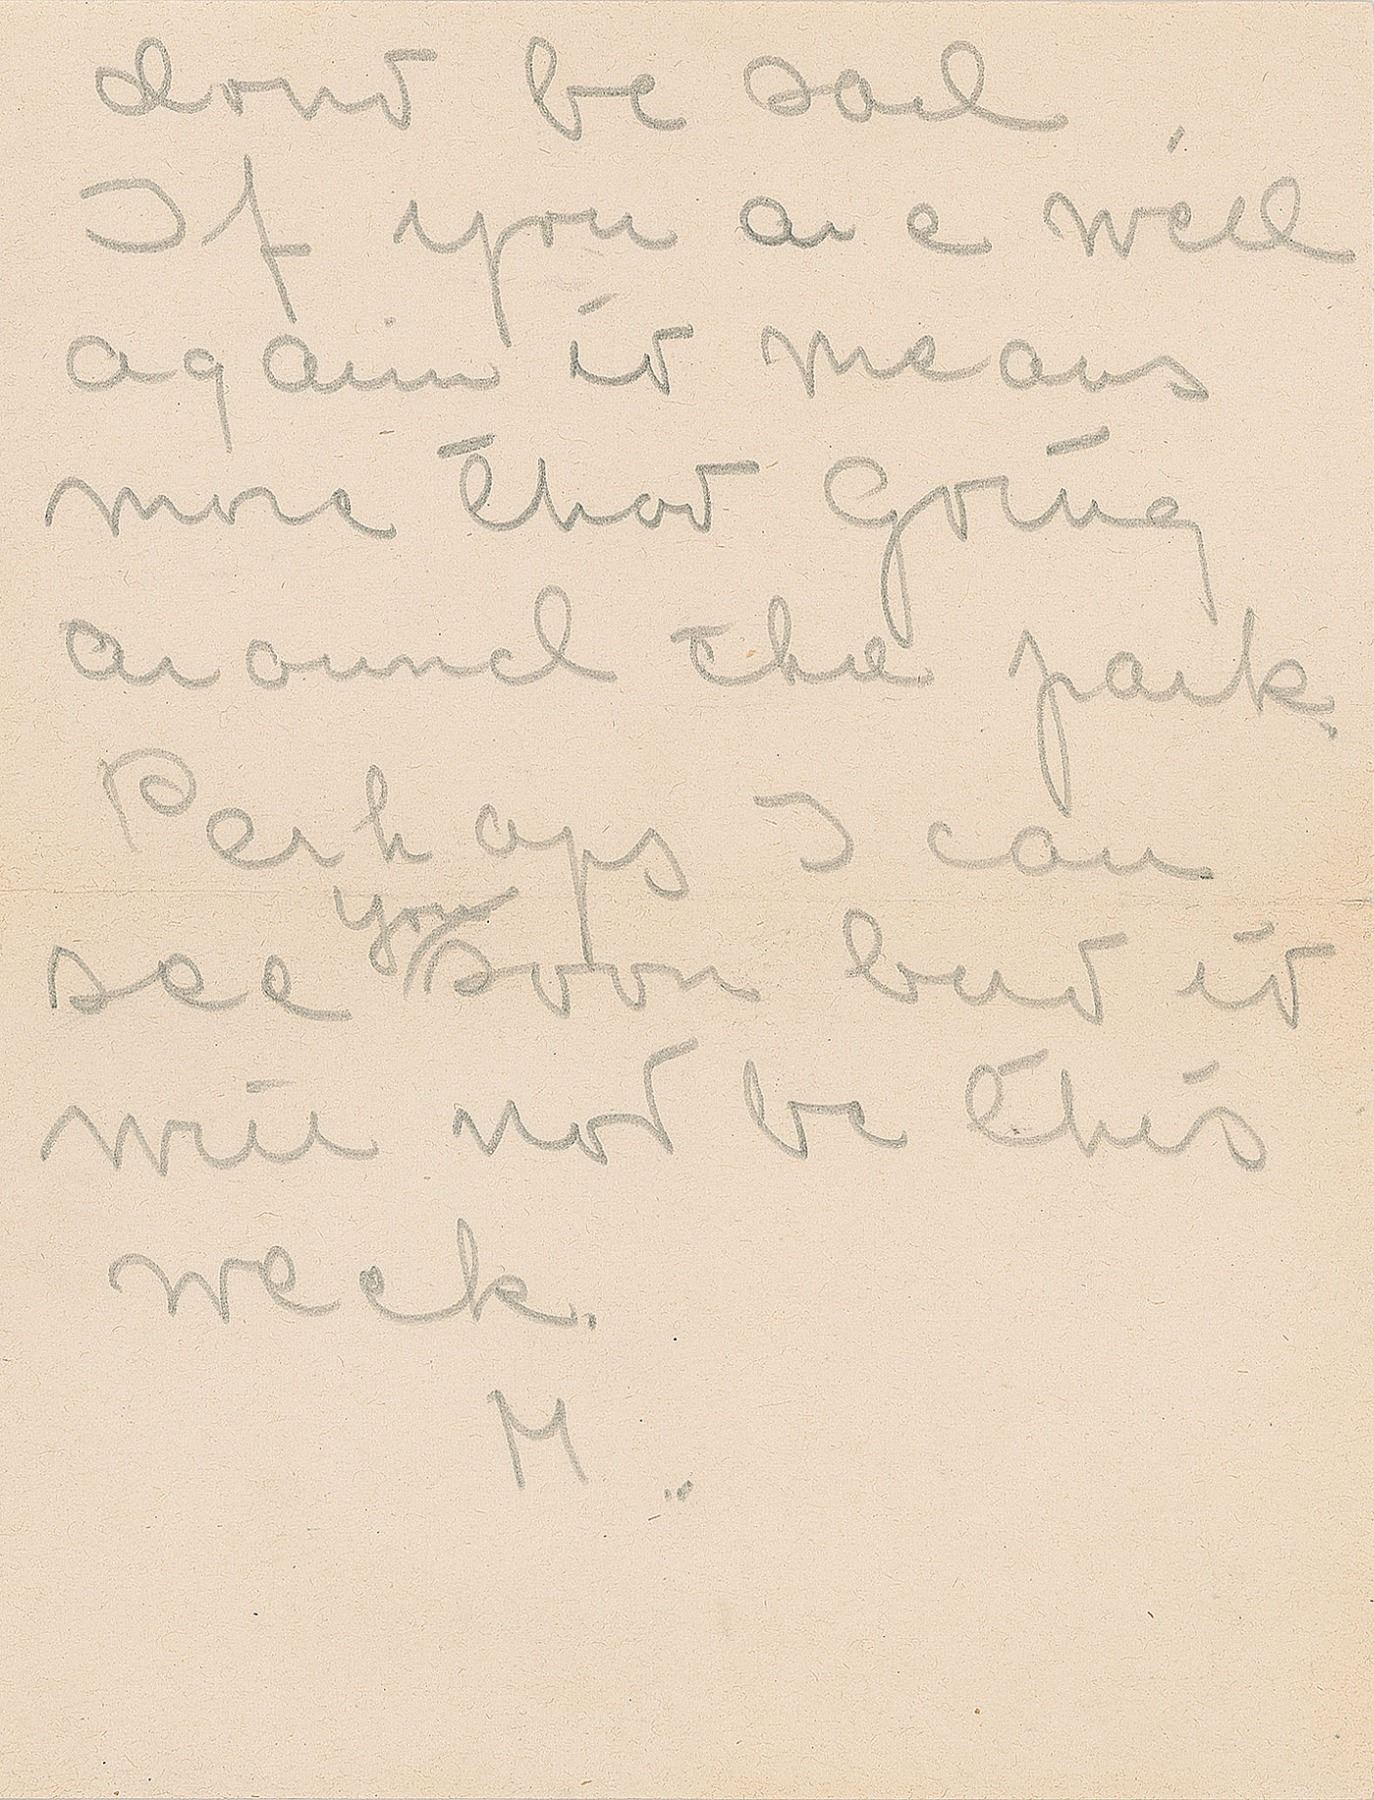 dont be sad,
If you are well
again it means
more that going
around the park.
Perhaps I can
see you soon but it
will not be this
week.
M..